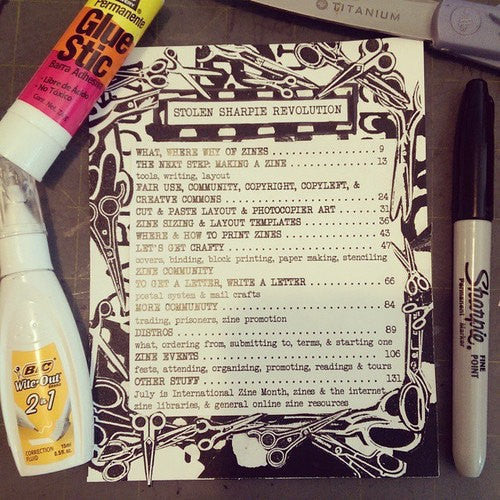 Permanente
Glue
Stic
Barra Adhesiva
- Libre de Ácido
- No Tóxico
TITANIUM
STOLEN SHARPIE REVOLUTION
WHAT, WHERE WHY OF ZINES ............ 9
THE NEXT STEP: MAKING A ZINE ............ 13
tools, writing, layout
FAIR USE, COMMUNITY, COPYRIGHT, COPYLEFT, &
CREATVE COMMONS ............ 24
CUT & PASTE LAYOUT & PHOTOCOPIER ART ..... 31
ZINE SIZING & LAYOUT TEMPLATES ............ 36
WHERE & HOW TO PRINT ZINES ............ 43
LET'S GET CRAFTY ............ 47
covers, binding, block printing, paper making, stenciling
ZINE COMMUNITY
TO GET A LETTER, WRITE A LETTER ........ 66
postal system & mail crafts
MORE COMMUNITY ............ 84
trading, prisoners, zine promotion
DISTROS ............ 89
what, ordering from, submitting to, terms, & starting one
ZINE EVENTS ............ 106
fests, attending, organizing, promoting, readings & tours
OTHER STUFF ............ 131
July is International Zine Month, zines & the internet
zine libraries, & general online zine resources
BIC
Wite-Out
2 in 1
CORRECTION
FLUID
15ml
0.5fl.oz.
Sharpie
Permanent Marker
FINE
POINT